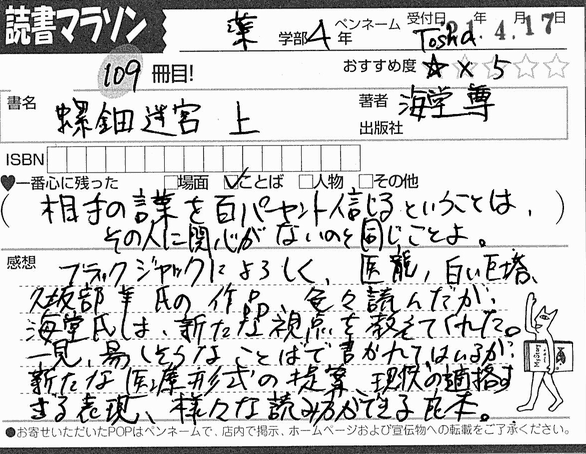 読書マラソン
薬 学部 4 年 ペンネーム Tosha. 受付日 '21年 4月 17日
109 冊目! おすすめ度 ★×5 ☆☆
書名 螺鈿迷宮 上 著者 海堂 尊
出版社
ISBN
♥一番心に残った □場面 ☑ことば □人物 □その他
(相手の言葉を百パーセント信じるということは、)
その人に関心がないのと同じことよ。
感想 ブラックジャックによろしく、医龍、白い巨塔、
久坂部羊氏の作品、色々読んだが、
海堂氏は、新たな視点を教えてくれた。
一見、易しそうなことばで書かれてはいるが、
新たな医療形式の提案、現状の適格す
ぎる表現、様々な読み方ができる一冊。
●お寄せいただいたPOPはペンネームで、店内で掲示、ホームページおよび宣伝物への転載をご了承ください。